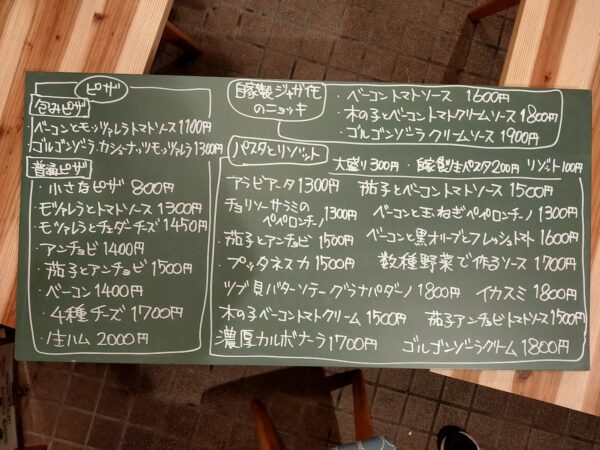 ピザ
包みピザ
・ベーコンとモッツァレラトマトソース 1100円
ゴルゴンゾーラ カシューナッツモッツァレラ 1300円
普通ピザ
・小さなピザ 800円
モッツァレラとトマトソース 1300円
モッツァレラとチェダーチーズ 1450円
・アンチョビ 1400円
・茄子とアンチョビ 1500円
・ベーコン 1400円
・4種チーズ 1700円
・生ハム 2000円
自家製ジャガイモ
のニョッキ
・ベーコントマトソース 1600円
・木の子とベーコントマトクリームソース 1800円
・ゴルゴンゾーラクリームソース 1900円
パスタとリゾット
大盛り300円・自家製生パスタ200円 リゾット100円
アラビアータ 1300円
チョリソーサラミの
ペペロンチーノ 1300円
・茄子とアンチョビ 1500円
・プッタネスカ 1500円
ツブ貝バターソテーグラナパダーノ 1800円
木の子ベーコントマトクリーム 1500円
濃厚カルボナーラ 1700円
茄子とベーコントマトソース 1500円
ベーコンと玉ねぎペペロンチーノ 1300円
ベーコンと黒オリーブとフレッシュトマト 1600円
数種野菜で作るソース 1700円
イカスミ 1800円
茄子アンチョビトマトソース 1500円
ゴルゴンゾーラクリーム 1800円